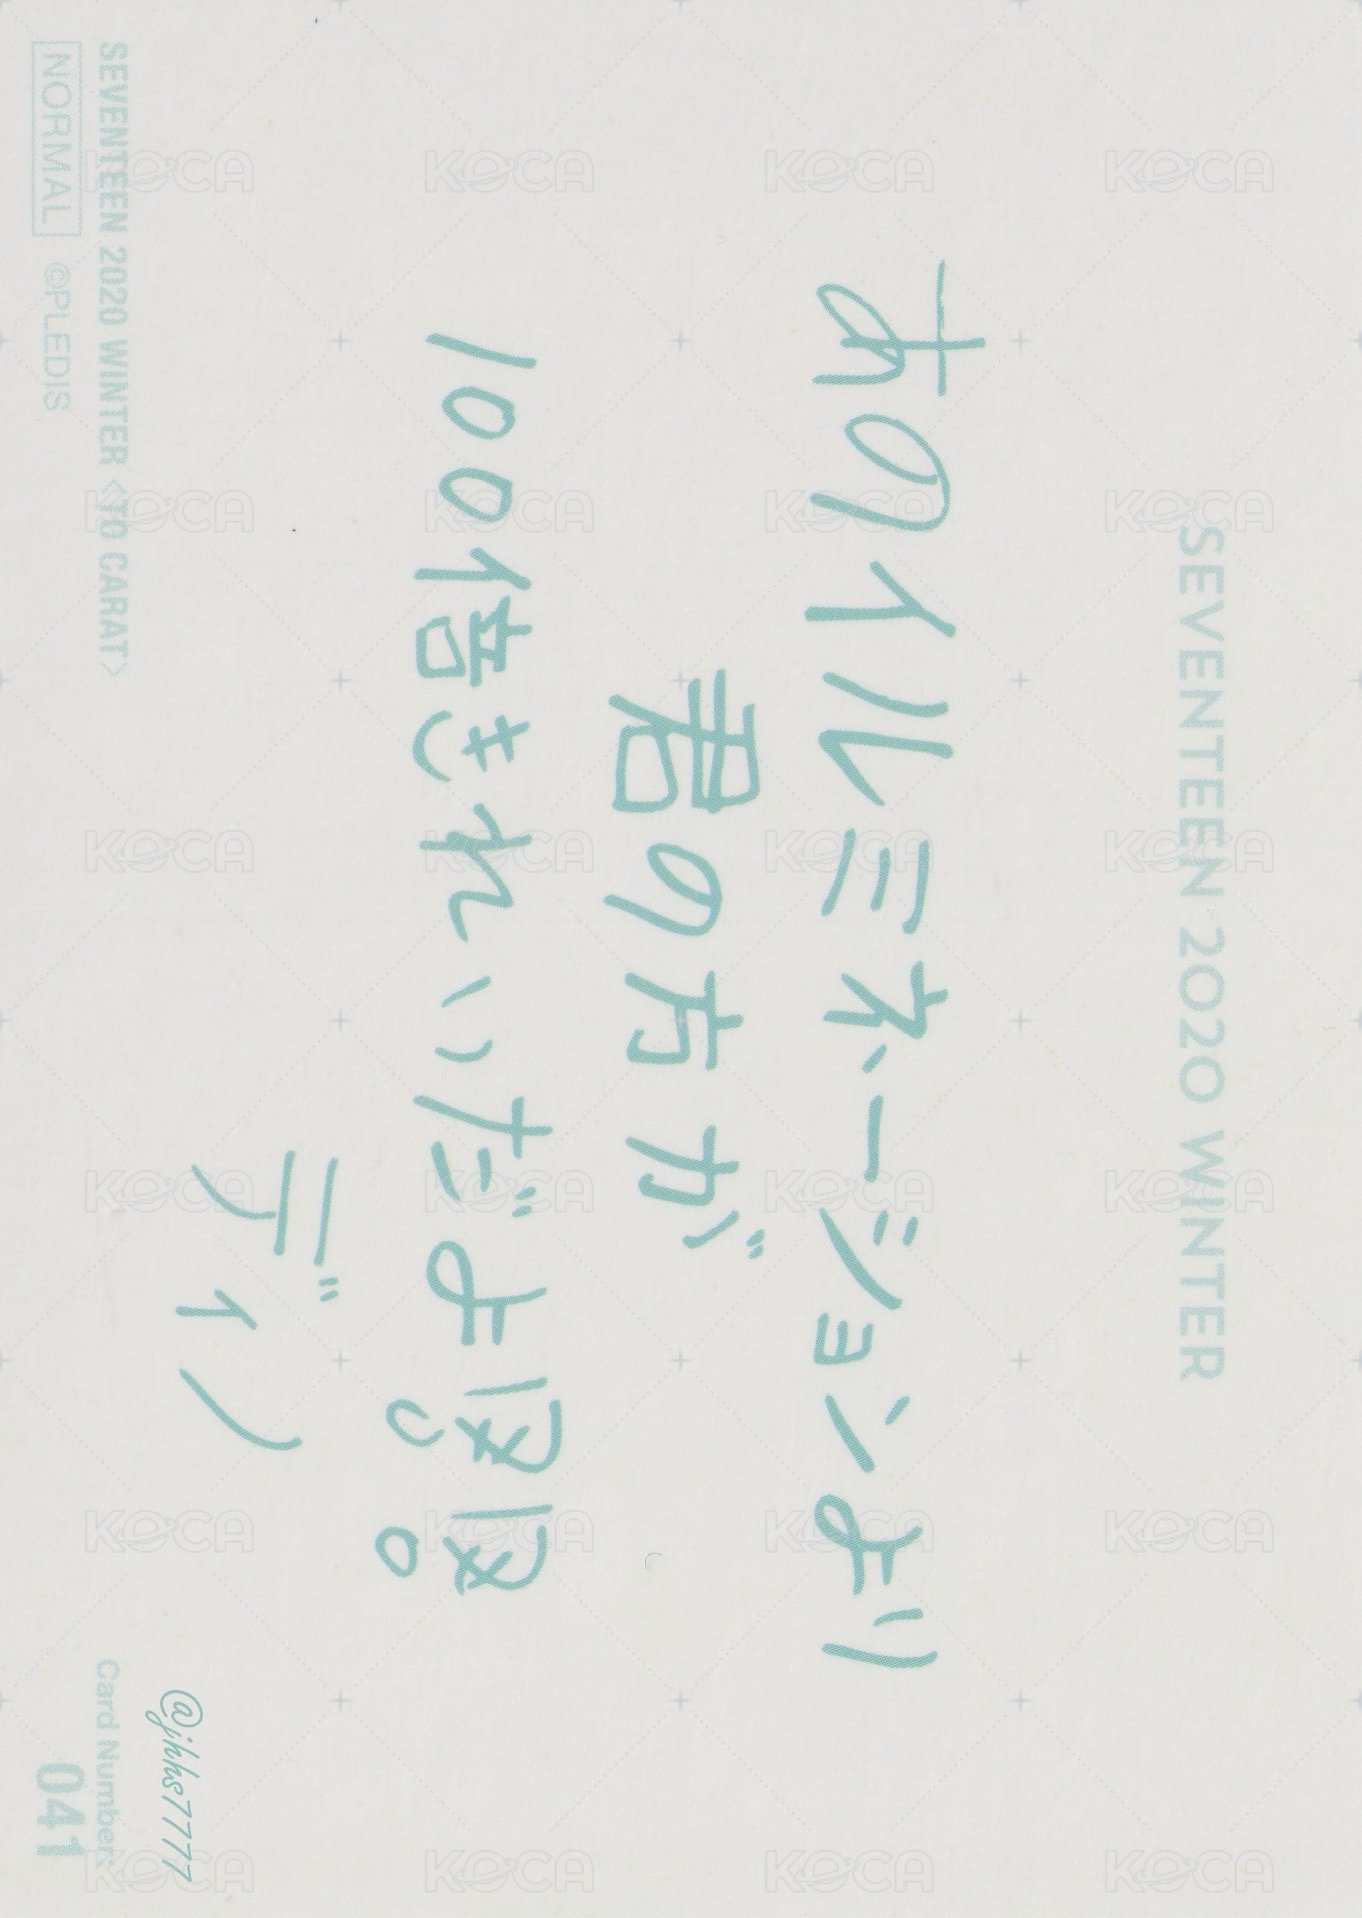 SEVENTEEN 2020 WINTER
あのイルミネーションより
君の方が
100倍きれいだよほほ。
ディノ
@jhhs7777
SEVENTEEN 2020 WINTER <TO CARAT>
NORMAL ©PLEDIS
Card Number:
041
KOCA